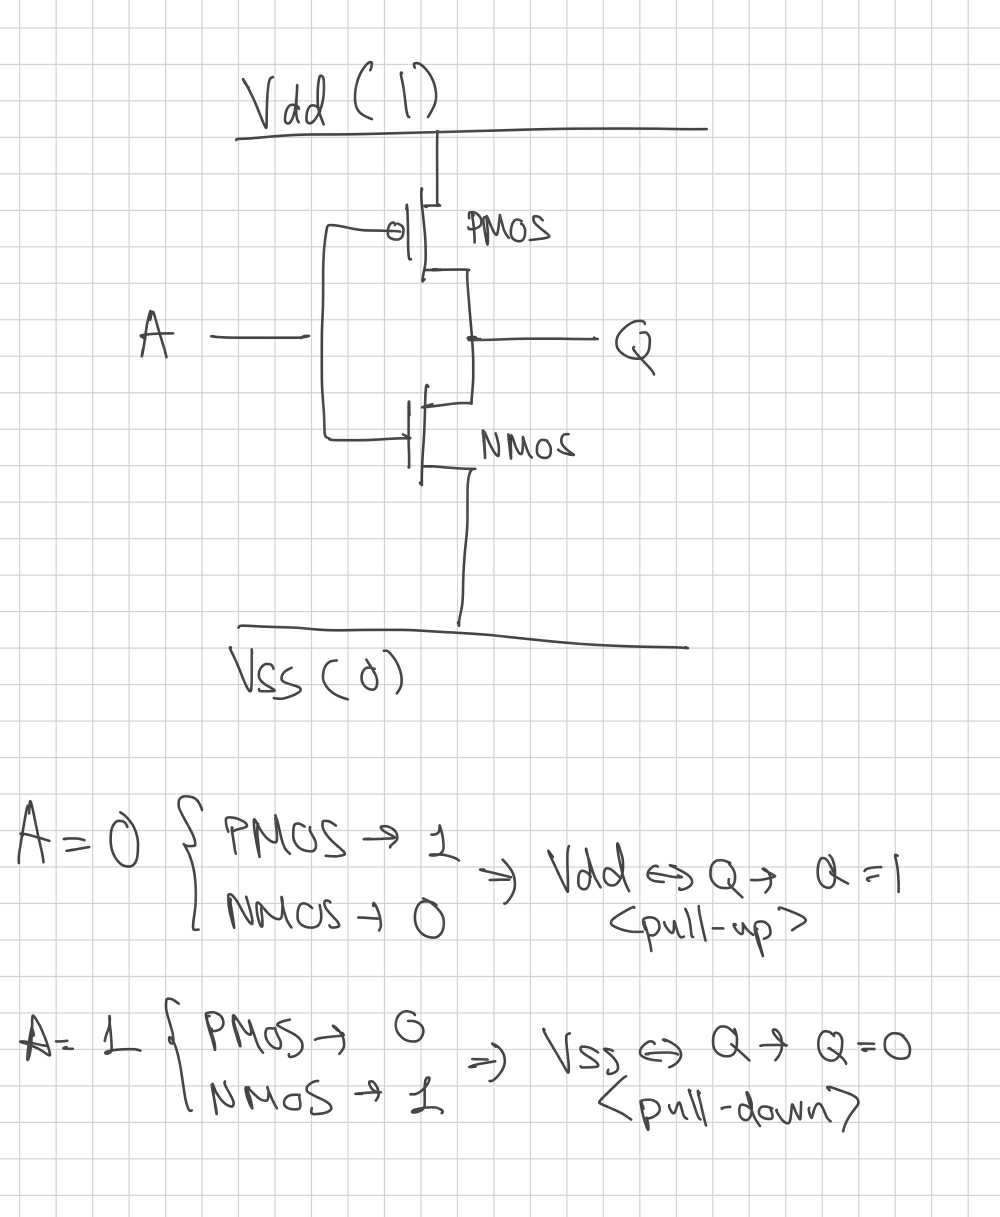 Vdd (1)
PMOS
A
Q
NMOS
VSS (0)
A = 0 { PMOS → 1
NMOS → 0
⇒ Vdd ⇔ Q → Q = 1
<pull-up>
A = 1 { PMOS → 0
NMOS → 1
⇒ Vss ⇔ Q → Q = 0
<pull-down>